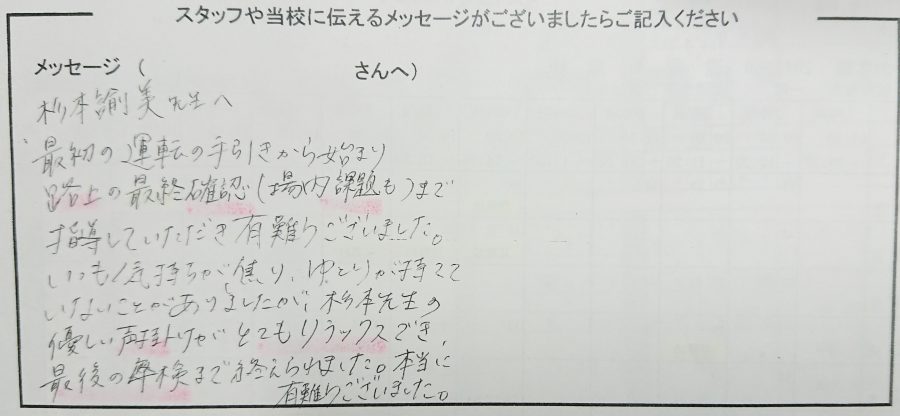 スタッフや当校に伝えるメッセージがございましたらご記入ください
メッセージ ( さんへ)
杉本諭美先生へ
最初の運転の手引きから始まり
路上の最終確認(場内課題も)まで
指導していただき有難うございました。
いつも気持ちが焦り、ゆとりが持てて
いないことがありましたが、杉本先生の
優しい声掛けがとてもリラックスでき、
最後の卒検まで終えられました。本当に
有難うございました。